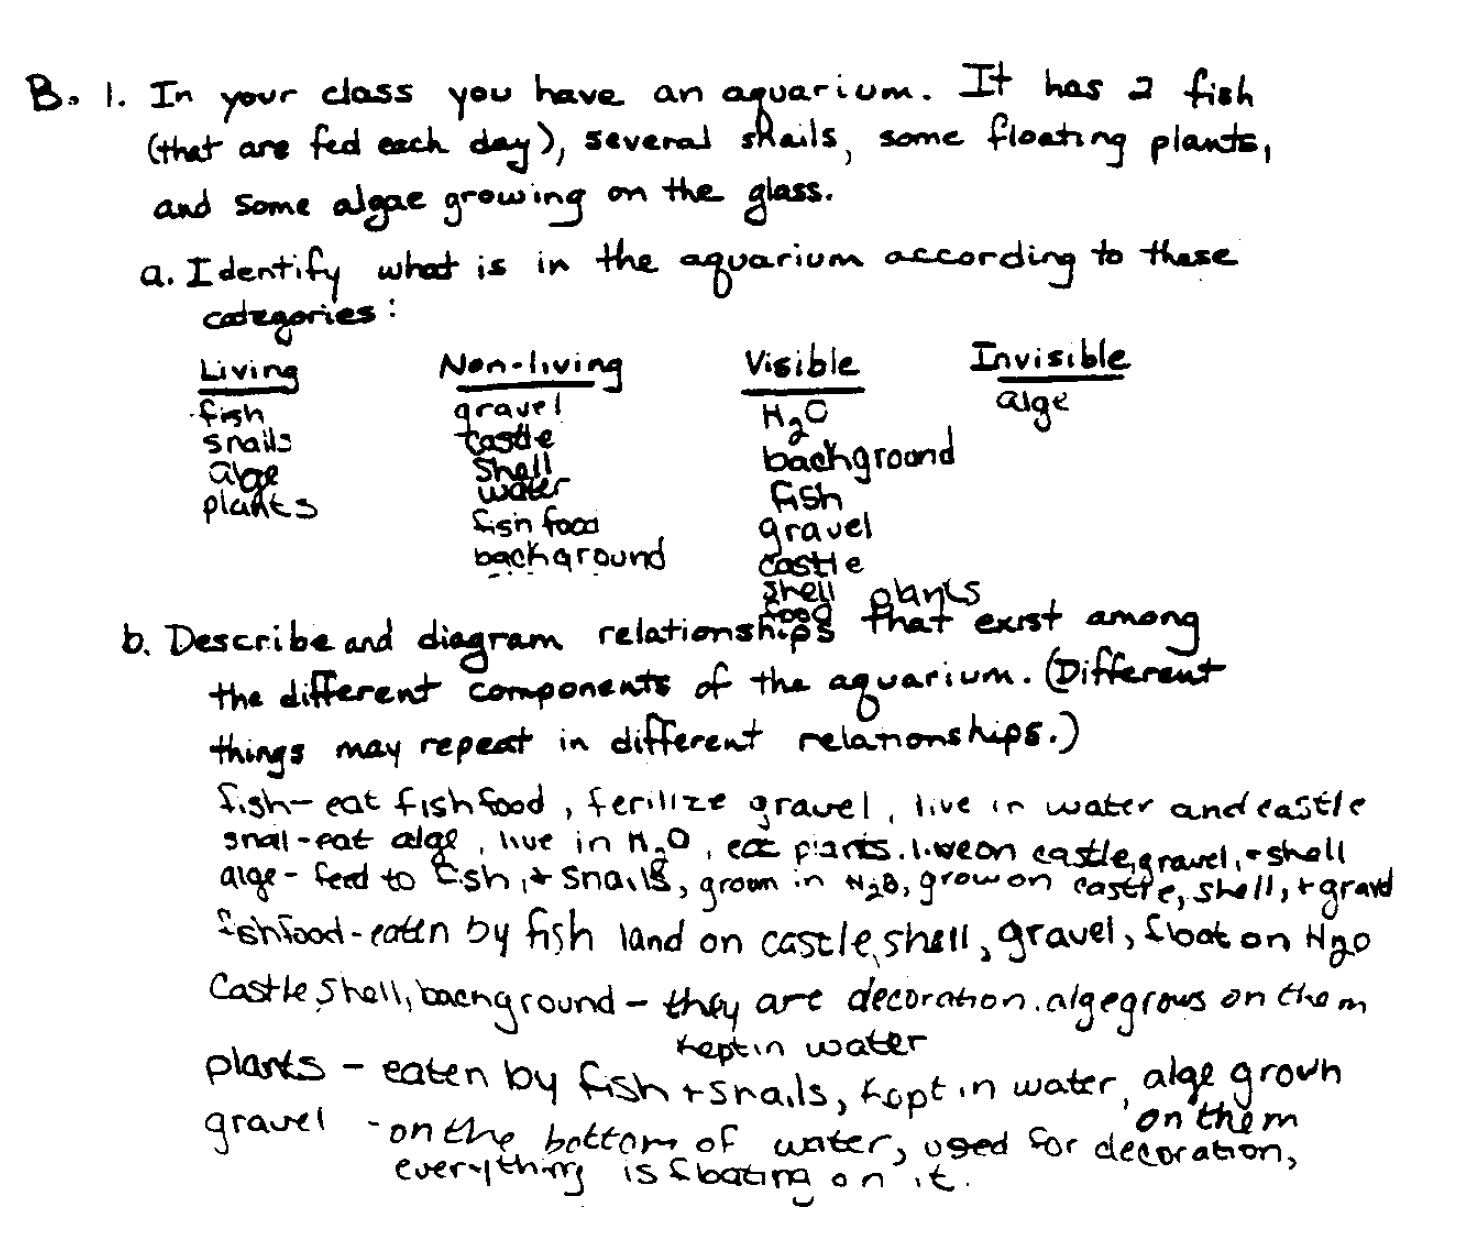 B. 1. In your class you have an aquarium. It has 2 fish
(that are fed each day), several snails, some floating plants,
and some algae growing on the glass.
a. Identify what is in the aquarium according to these
categories:
Living Non-living Visible Invisible
fish gravel H2O alge
snails castle background
alge shell fish
plants water gravel
fish food castle
background shell plants
food
b. Describe and diagram relationships that exist among
the different components of the aquarium. (Different
things may repeat in different relationships.)
fish- eat fish food, ferilize gravel, live in water and castle
snail-eat alge, live in H2O, eat plants. live on castle, gravel, + shell
alge - feed to fish, + snails, grown in H2O, grow on castle, shell, + gravel
fishfood-eaten by fish land on castle, shell, gravel, float on H2O
Castle, Shell, background - they are decoration. alge grows on them
kept in water
plants - eaten by fish + snails, kept in water, alge grown
on them
gravel - on the bottom of water, used for decoration,
everything is floating on it.